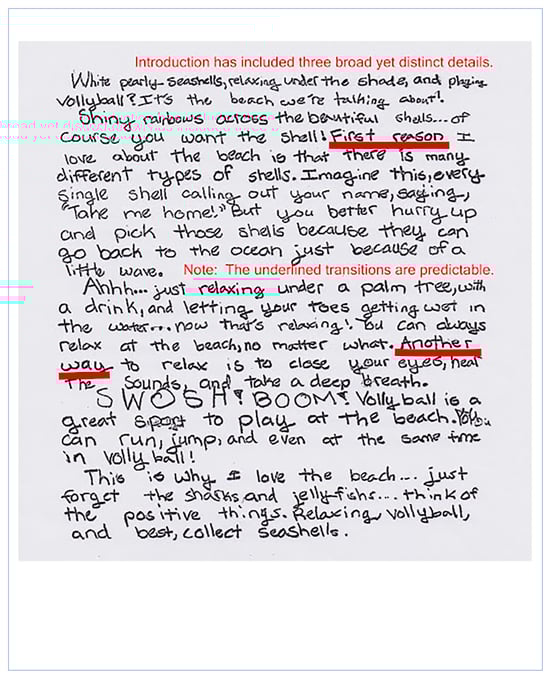 Introduction has included three broad yet distinct details.
White pearly seashells, relaxing under the shade, and playing
vollyball? It's the beach we're talking about!
Shiny rainbows across the beautiful shells... of
course you want the shell! First reason I
love about the beach is that there is many
different types of shells. Imagine this, every
single shell calling out your name, saying,
"Take me home!" But you better hurry up
and pick those shells because they can
go back to the ocean just because of a
little wave. Note: The underlined transitions are predictable.
Ahhh... just relaxing under a palm tree, with
a drink, and letting your toes getting wet in
the water... now that's relaxing! You can always
relax at the beach, no matter what. Another
way to relax is to close your eyes, hear
the sounds, and take a deep breath.
SWOSH! BOOM! Vollyball is a
great sport to play at the beach. You
can run, jump, and even at the same time
in vollyball!
This is why I love the beach... just
forget the sharks and jelly-fishs... think of
the positive things. Relaxing, vollyball,
and best, collect seashells.